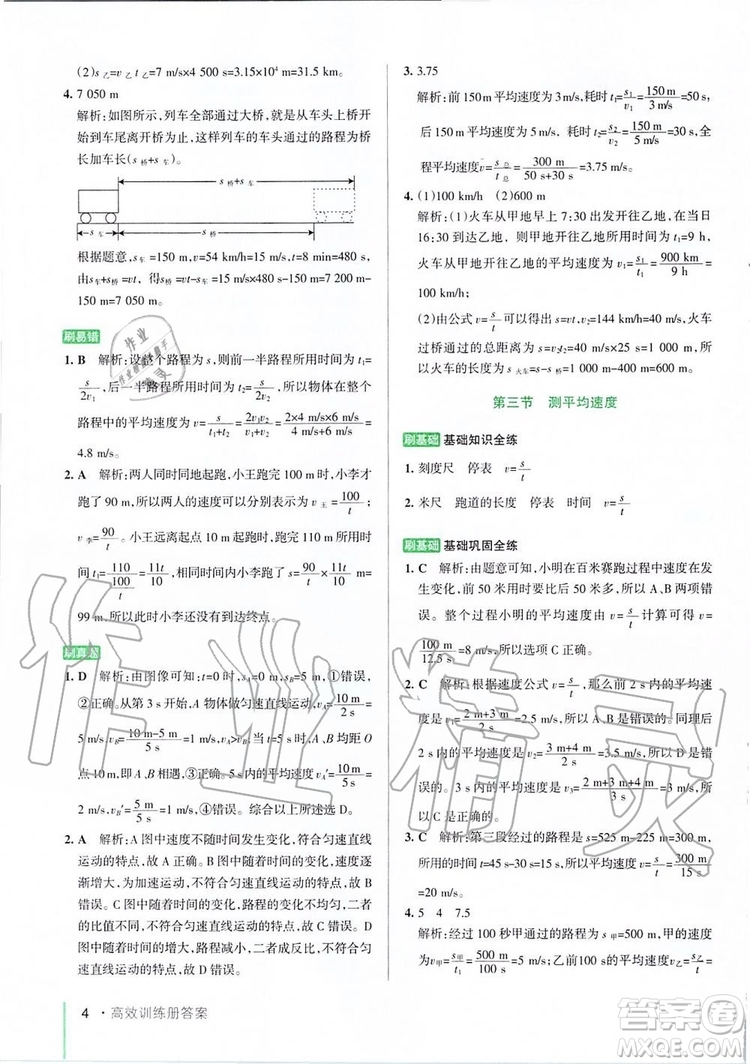 (2)s乙=v乙 t乙=7 m/s×4 500 s=3.15×10⁴ m>1 000 m。
4. 7 050 m
解析:如图所示,列车全部通过大桥,就是从车头上桥开始到车尾离开桥为止,这样列车的车头通过的路程为桥长加车长(s桥+s车)
s桥+s车
s车 s桥
根据题意,s车=150 m,v=54 km/h=15 m/s,t=8 min=480 s,由s车+s桥=vt得s桥=vt-s车=15 m/s×480 s-150 m=7 200 m-150 m=7 050 m
刷易错
1. B 解析:设整个路程为s,则前一半路程所用时间t₁=
s/2v₁,后一半路程所用时间t₂=s/2v₂,所以物体在整个
路程中的平均速度v=s/(t₁+t₂)=2v₁v₂/(v₁+v₂)=(2×4 m/s×6 m/s)/(4 m/s+6 m/s)=
4.8 m/s。
2. A 解析:两人同时同地起跑,小王跑了100 m时小李才
跑了90 m,所以两人的速度可以分别表示为v王=100/t,
v李=90/t。小王远离起点10 m起跑,小王跑完全程所用
时间t₁=110/(100/t)=110/100 t,此时小李通过的路程s=90/t×110/100 t=
99 m,故此时小李还没有到达终点。
刷真题
1. D 解析:由图像可知:t=0时,sA=0 m,sB=5 m,①错误,
②正确。从第3 s开始,A、B物体做匀速直线运动,vA=10 m/2 s=
5 m/s,vB=(10 m-5 m)/5 s=1 m/s,vA>vB;当t=5 s时,A、B均距O
点10 m,所以A、B相遇,③正确。5 s内,vA′=10 m/5 s=
2 m/s,vB′=5 m/5 s=1 m/s,④错误。综合以上所述,故选D。
2. A 解析:A图中速度不随时间发生变化,符合匀速直线
运动的特点,故A正确。B图中随着时间的增大,速度逐
渐增大,不符合匀速直线运动的特点,故B错误。C图中
随着时间的增大,路程不变,不符合匀速直线运动,二者
的比值不同,不符合匀速直线运动,故C错误。D图中随
着时间的增大,路程减小,二者成反比,不符合匀速直线
运动的特点,故D错误。
4 · 高效训练册答案
3. 3.75
解析:前150 m平均速度为3 m/s,耗时t₁=s₁/v₁=150 m/3 m/s=50 s,
后150 m平均速度为5 m/s,耗时t₂=s₂/v₂=150 m/5 m/s=30 s,全
程平均速度为v=s总/t总=300 m/(50 s+30 s)=3.75 m/s。
4. (1)100 km/h (2)600 m
解析:(1)火车从甲地早上7:30出发开往乙地,在当日
16:30到达乙地,则火车从甲地到乙地的时间为t₁=9 h,
火车从甲地开往乙地的平均速度为v₁=s₁/t₁=900 km/9 h=
100 km/h。
(2)由公式v=s/t可以得出s=vt,v₂=144 km/h=40 m/s,火车
过桥通过的总距离为s=v₂t₂=40 m/s×40 s=1 600 m,
所以火车长为s火车=s-s桥=1 600 m-1 000 m=600 m。
第三节 测平均速度
刷基础 基础知识全练
1. 刻度尺 停表 v=s/t
2. 米尺 跑道的长度 停表 时间 v=s/t
刷基础 基础巩固全练
1. C 解析:由题意可知,小明在百米赛跑过程中速度在发
生变化,前50米用时要比后50米用时少,所以A、B、D
错误。整个过程小明的平均速度由v=s/t计算可得v=
s/t=100 m/12.5 s=8 m/s,所以C正确。
2. C 解析:根据速度公式v=s/t,那么前2 s的平均速
度v₁=(2 m+3 m)/2 s=2.5 m/s,所以A、B是错误的。同理后
2 s内的平均速度v₂=(3 m+4 m)/2 s=3.5 m/s,所以D是错误
的。3 s内的全程的平均速度v₃=(2 m+3 m+4 m)/3 s=3 m/s,
所以C正确。
3. C 解析:第三段经过的路程是s=525 m-225 m=300 m,
所用的时间t=45 s-30 s=15 s,所以平均速度v=s/t=300 m/15 s
=20 m/s。
4. 5 4 7.5
解析:经过100秒甲通过的路程为500 m,甲的平均速度
v甲=s甲/t₁=500 m/100 s=5 m/s;经过100秒乙通过的路程为
作业精灵
答案圈
MXQE.COM